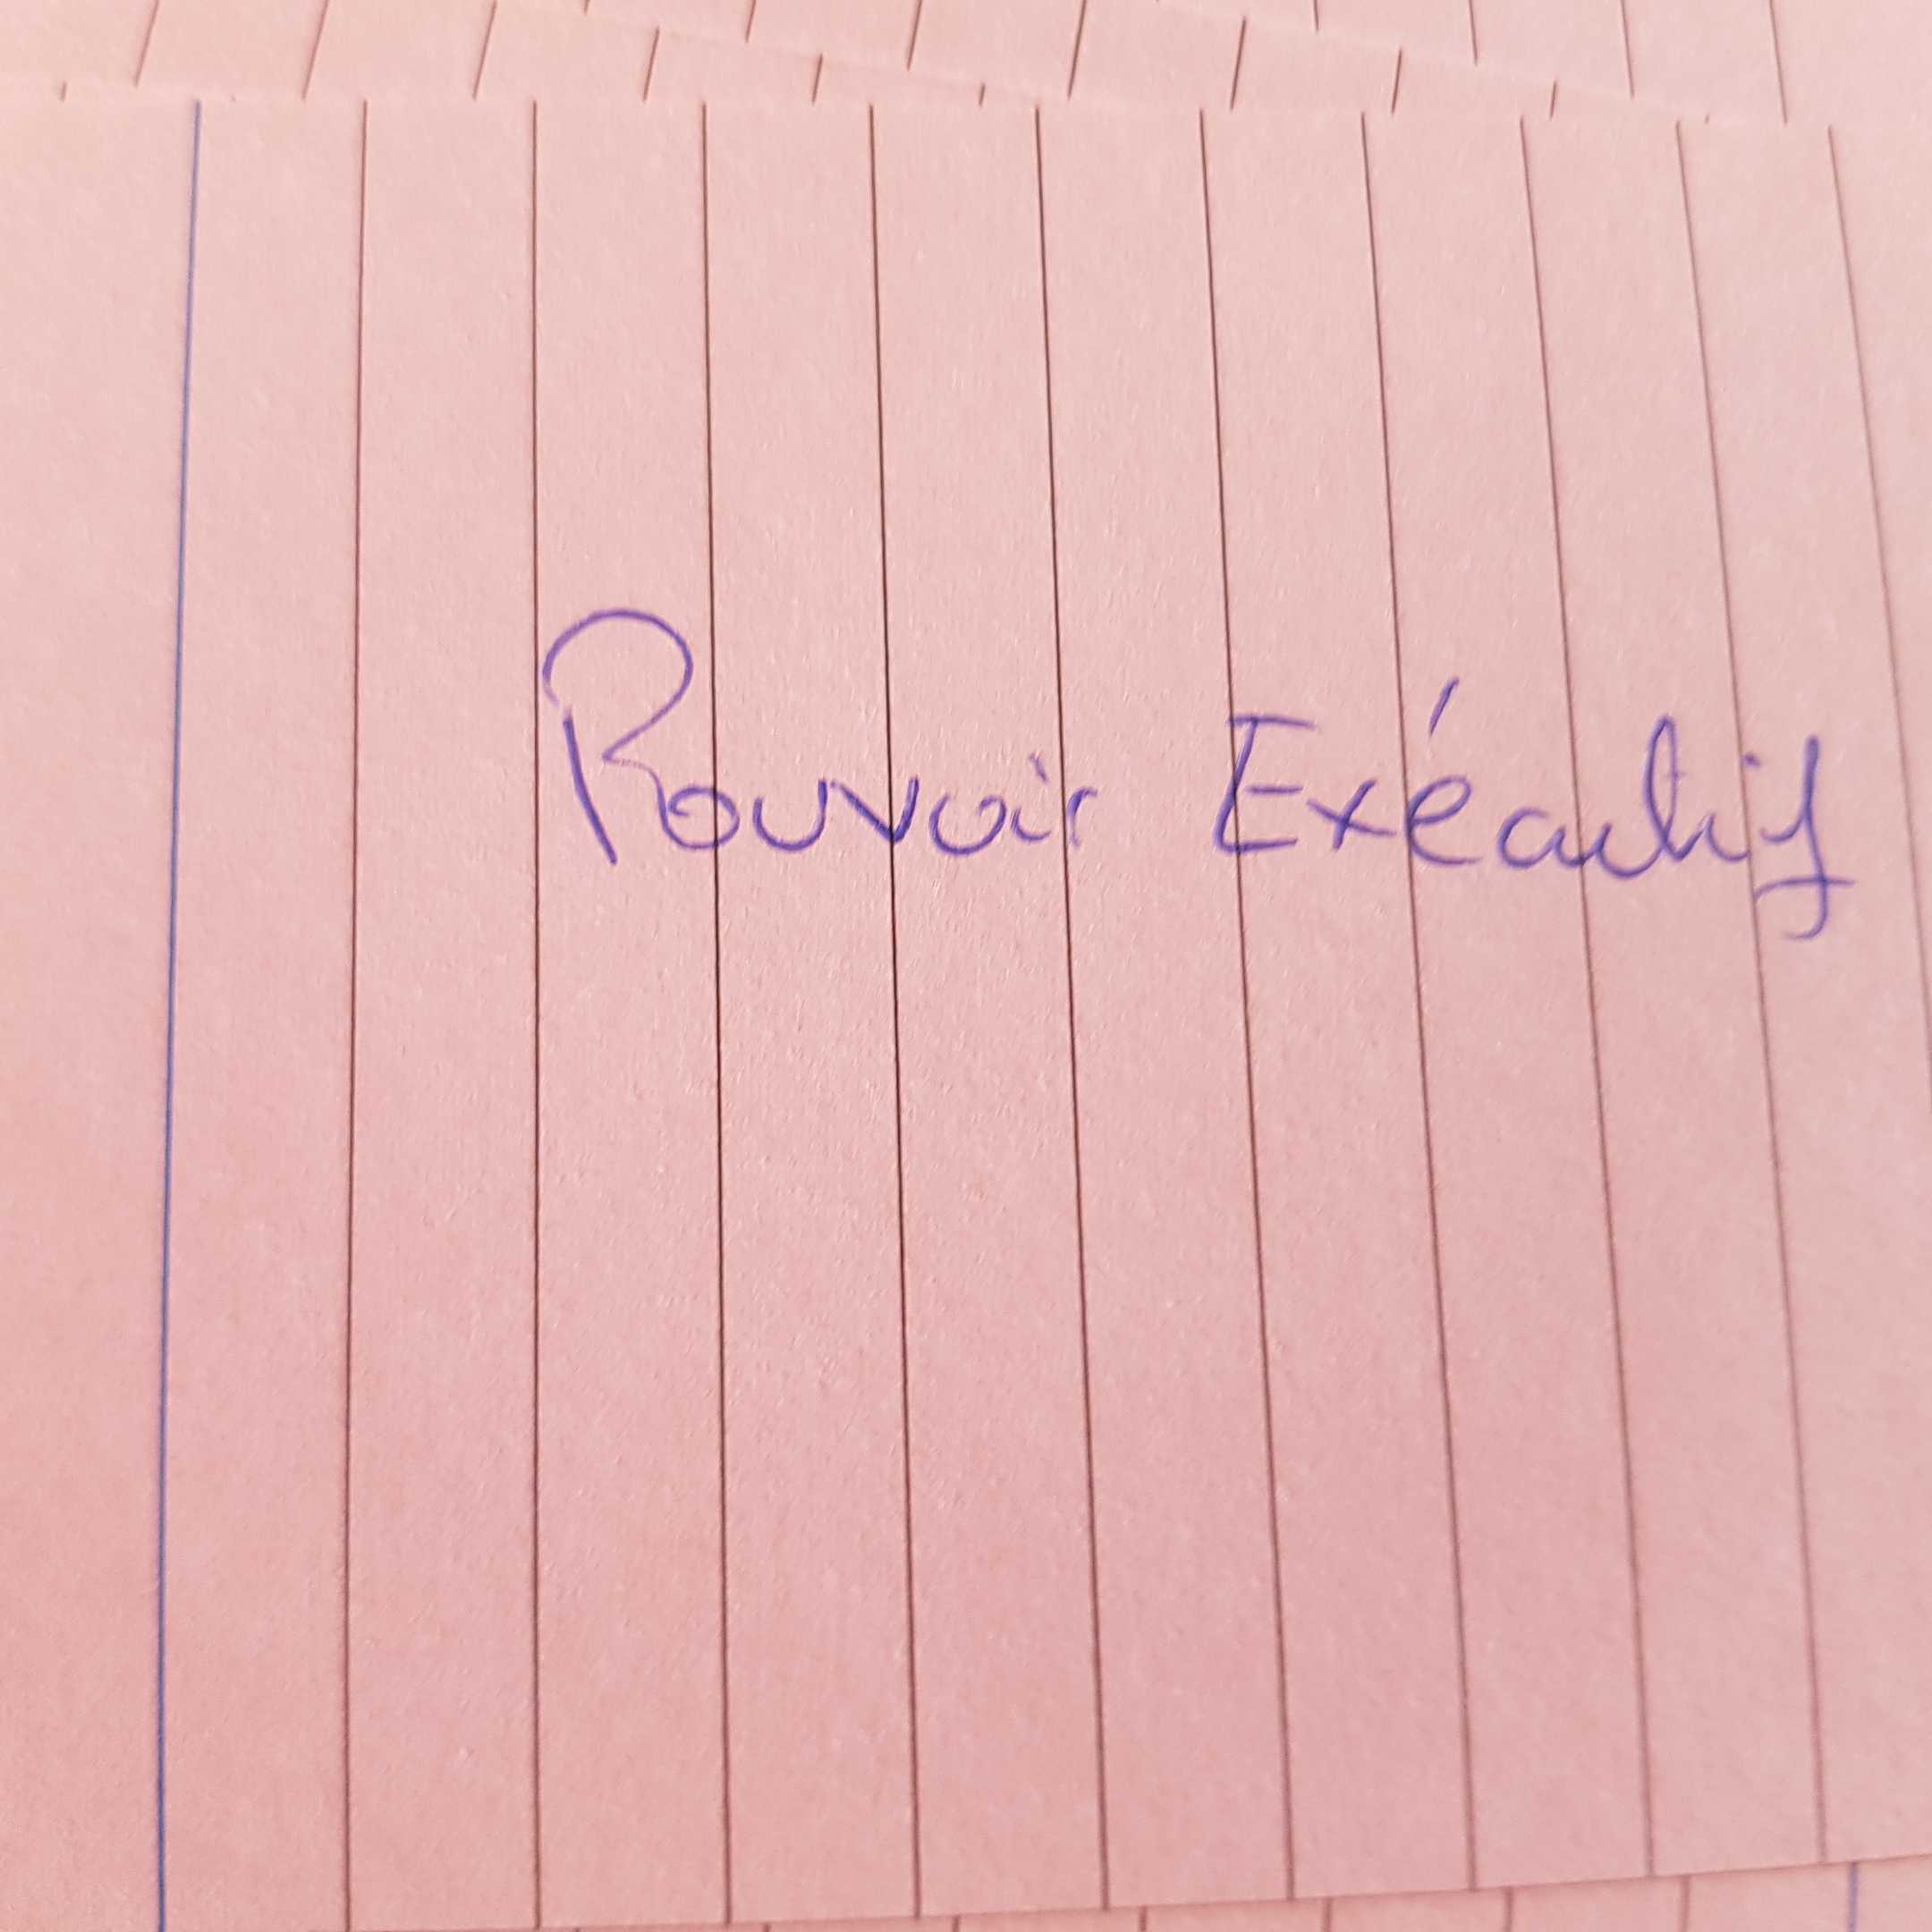 Pouvoir Exécutif